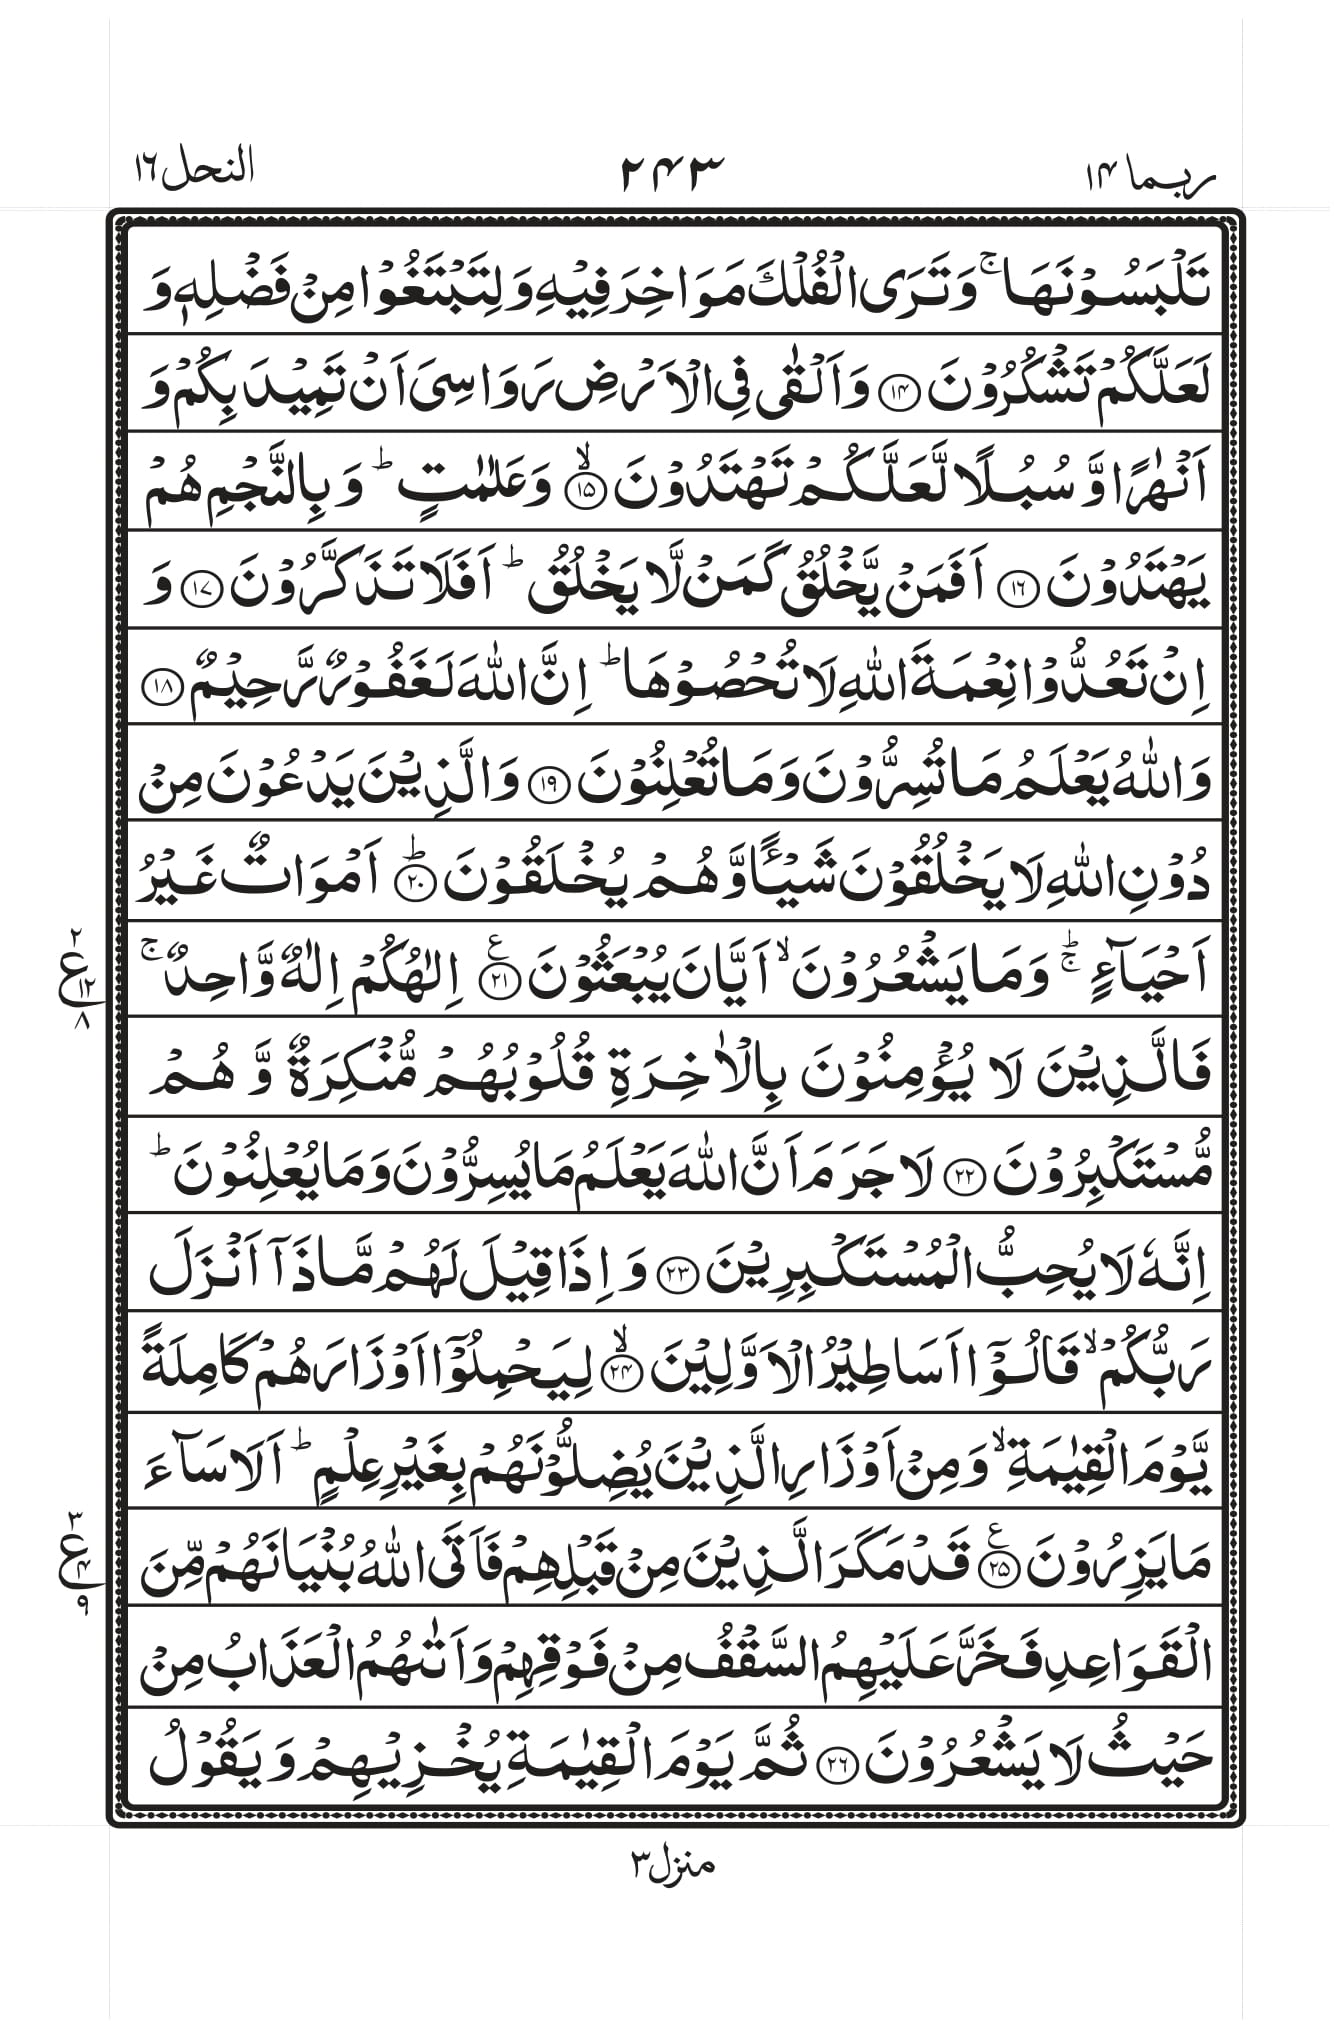 ربما ۱۴
۲۴۳
النحل ۱۶
تَلۡبَسُوۡنَهَا ۚ وَتَرَى الۡفُلۡكَ مَوَاخِرَ فِيۡهِ وَلِتَبۡتَغُوۡا مِنۡ فَضۡلِهٖ وَ
لَعَلَّكُمۡ تَشۡكُرُوۡنَ ﴿۱۴﴾ وَاَلۡقٰى فِى الۡاَرۡضِ رَوَاسِىَ اَنۡ تَمِيۡدَ بِكُمۡ وَ
اَنۡهٰرًا وَّ سُبُلًا لَّعَلَّكُمۡ تَهۡتَدُوۡنَ ۙ﴿۱۵﴾ وَعَلٰمٰتٍ ؕ وَ بِالنَّجۡمِ هُمۡ
يَهۡتَدُوۡنَ ﴿۱۶﴾ اَفَمَنۡ يَّخۡلُقُ كَمَنۡ لَّا يَخۡلُقُ ؕ اَفَلَا تَذَكَّرُوۡنَ ﴿۱۷﴾ وَ
اِنۡ تَعُدُّوۡا نِعۡمَةَ اللّٰهِ لَا تُحۡصُوۡهَا ؕ اِنَّ اللّٰهَ لَغَفُوۡرٌ رَّحِيۡمٌ ﴿۱۸﴾
وَاللّٰهُ يَعۡلَمُ مَا تُسِرُّوۡنَ وَمَا تُعۡلِنُوۡنَ ﴿۱۹﴾ وَالَّذِيۡنَ يَدۡعُوۡنَ مِنۡ
دُوۡنِ اللّٰهِ لَا يَخۡلُقُوۡنَ شَيۡـًٔا وَّهُمۡ يُخۡلَقُوۡنَ ؕ﴿۲۰﴾ اَمۡوَاتٌ غَيۡرُ
اَحۡيَآءٍ ۚؕ وَمَا يَشۡعُرُوۡنَ ۙ اَيَّانَ يُبۡعَثُوۡنَ ﴿۲۱﴾ع اِلٰهُكُمۡ اِلٰهٌ وَّاحِدٌ ۚ
۲
ع
۱۲
۸
فَالَّذِيۡنَ لَا يُؤۡمِنُوۡنَ بِالۡاٰخِرَةِ قُلُوۡبُهُمۡ مُّنۡكِرَةٌ وَّ هُمۡ
مُّسۡتَكۡبِرُوۡنَ ﴿۲۲﴾ لَا جَرَمَ اَنَّ اللّٰهَ يَعۡلَمُ مَا يُسِرُّوۡنَ وَمَا يُعۡلِنُوۡنَ ؕ
اِنَّهٗ لَا يُحِبُّ الۡمُسۡتَكۡبِرِيۡنَ ﴿۲۳﴾ وَ اِذَا قِيۡلَ لَهُمۡ مَّاذَاۤ اَنۡزَلَ
رَبُّكُمۡ ۙ قَالُوۡۤا اَسَاطِيۡرُ الۡاَوَّلِيۡنَ ۙ﴿۲۴﴾ لِيَحۡمِلُوۡۤا اَوۡزَارَهُمۡ كَامِلَةً
يَّوۡمَ الۡقِيٰمَةِ ۙ وَمِنۡ اَوۡزَارِ الَّذِيۡنَ يُضِلُّوۡنَهُمۡ بِغَيۡرِ عِلۡمٍ ؕ اَلَا سَآءَ
مَا يَزِرُوۡنَ ﴿۲۵﴾ع قَدۡ مَكَرَ الَّذِيۡنَ مِنۡ قَبۡلِهِمۡ فَاَتَى اللّٰهُ بُنۡيَانَهُمۡ مِّنَ
۳
ع
۴
۹
الۡقَوَاعِدِ فَخَرَّ عَلَيۡهِمُ السَّقۡفُ مِنۡ فَوۡقِهِمۡ وَاَتٰٮهُمُ الۡعَذَابُ مِنۡ
حَيۡثُ لَا يَشۡعُرُوۡنَ ﴿۲۶﴾ ثُمَّ يَوۡمَ الۡقِيٰمَةِ يُخۡزِيۡهِمۡ وَ يَقُوۡلُ
منزل ۳